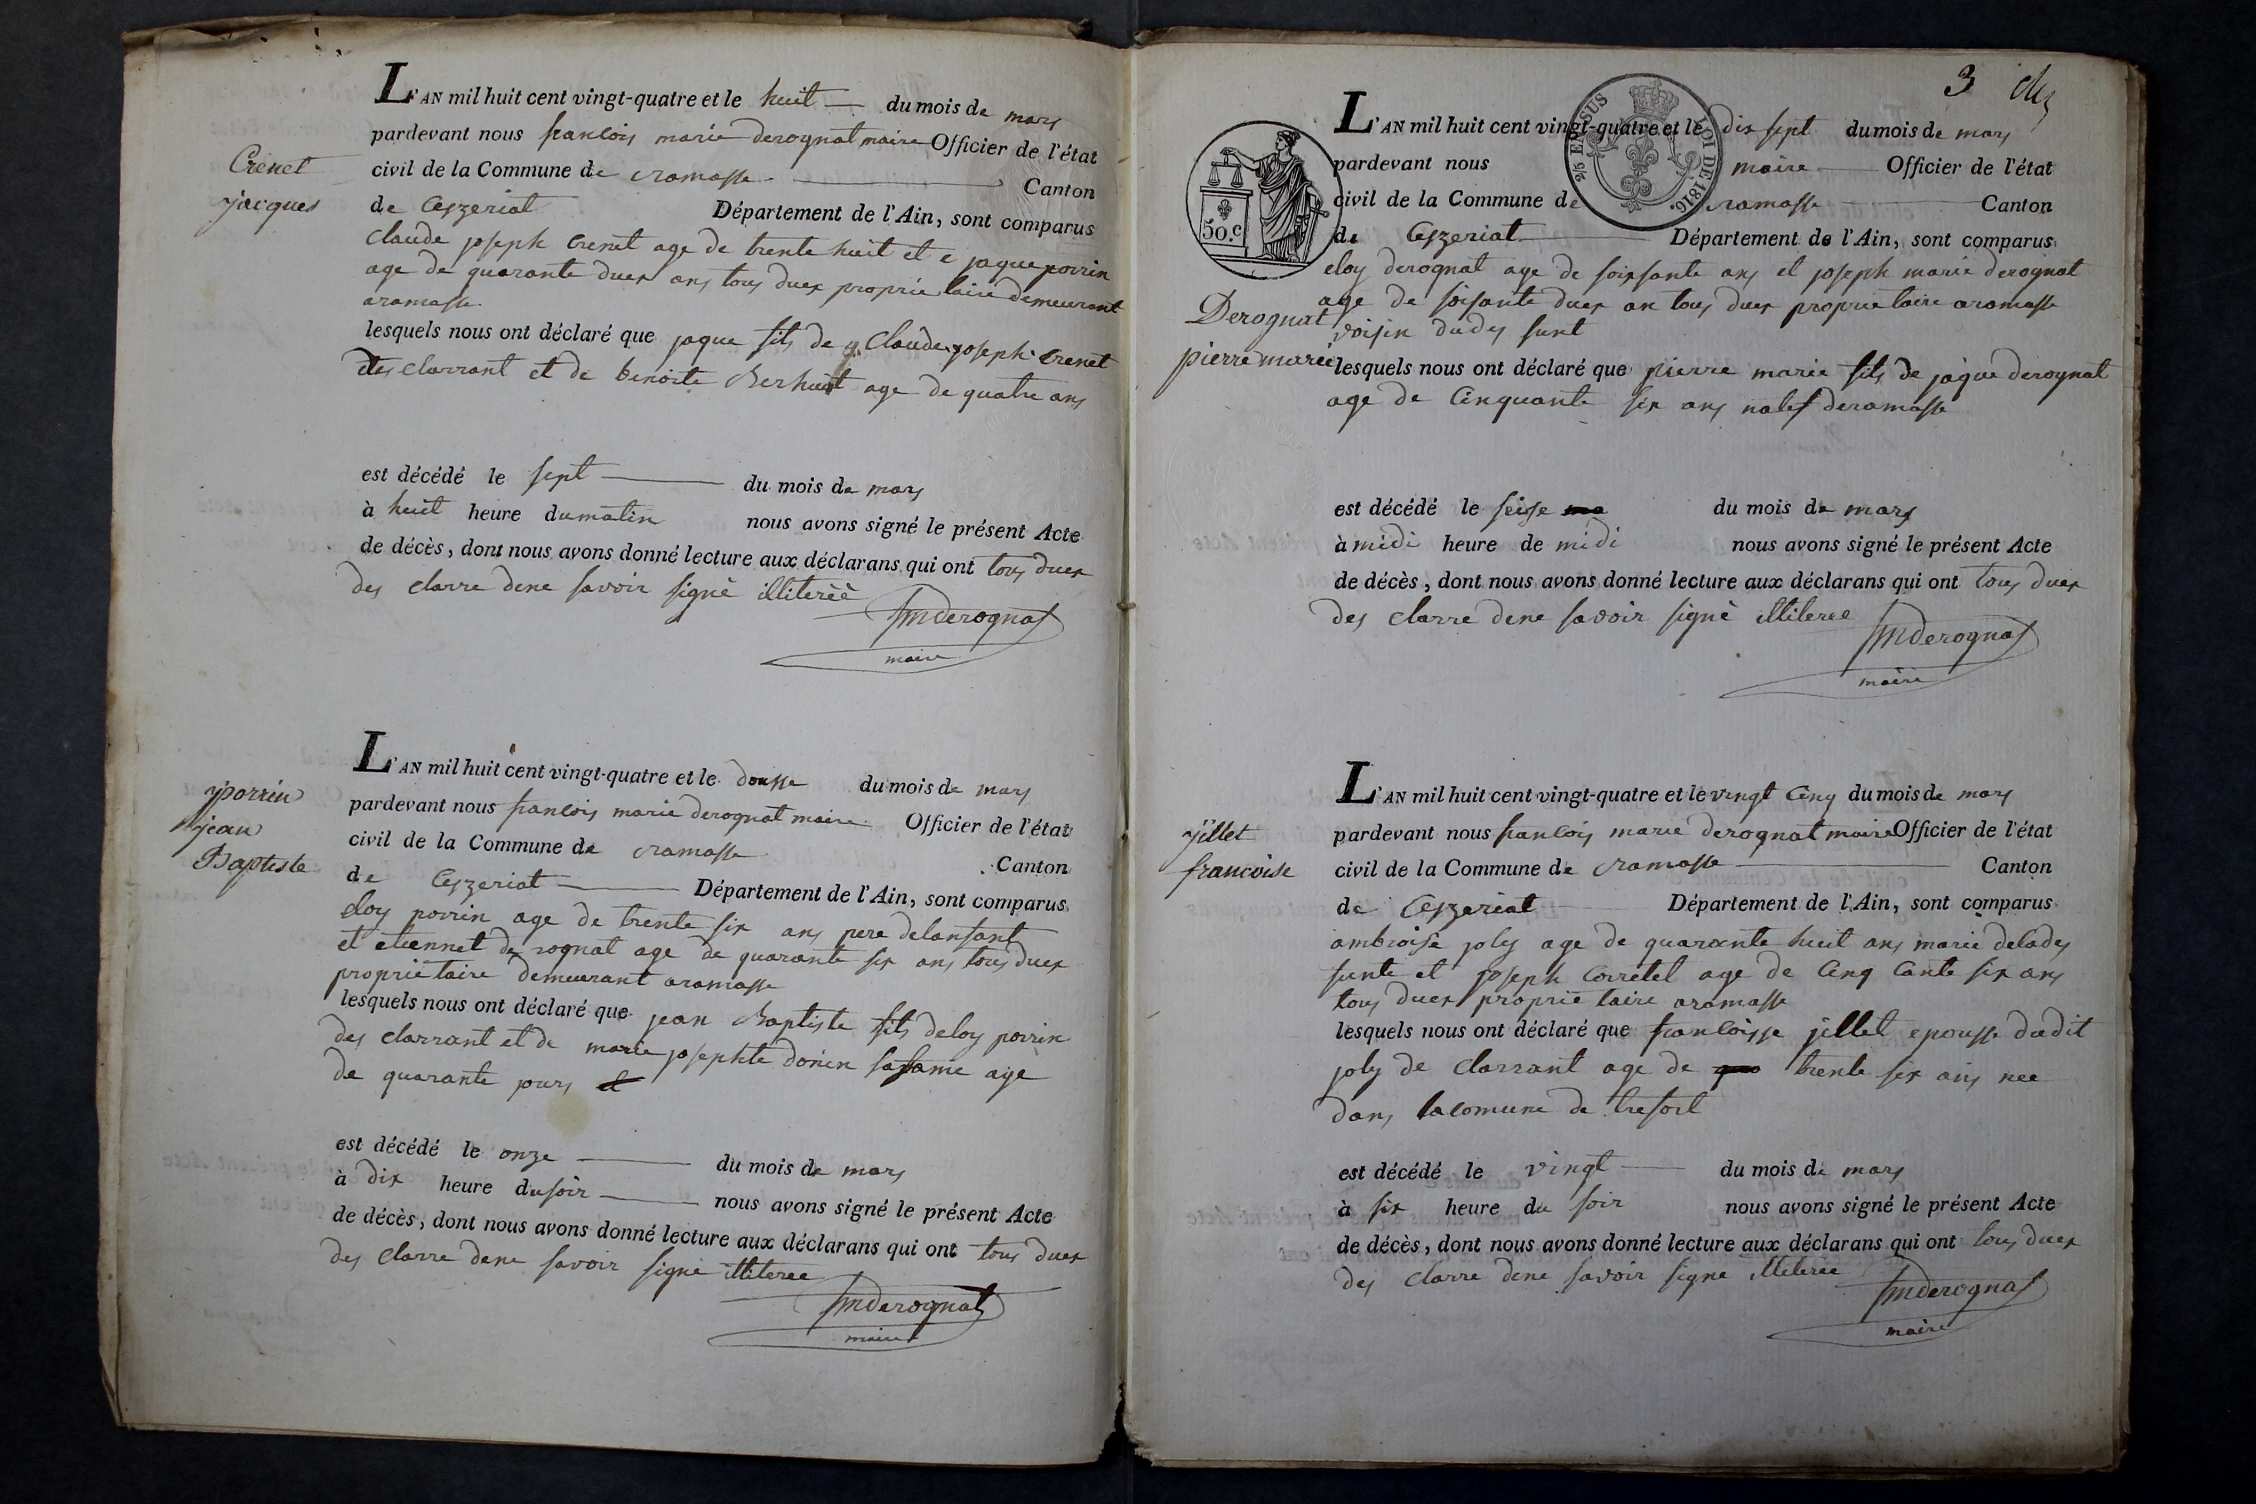 L'AN mil huit cent vingt-quatre et le huit du mois de mars
pardevant nous francois marie derognat maire Officier de l'état
civil de la Commune de ramasse Canton
de Ceyzeriat Département de l'Ain, sont comparus
Claude joseph Crenet age de trente huit et e jaque povrin
age de quarante duex ans tous duex proprietaire demeurant
aramasse
lesquels nous ont déclaré que jaque fils de Claude joseph Crenet
des clarrant et de benoite age de quatre ans
Crenet
jacques
est décédé le sept du mois de mars
à huit heure du matin nous avons signé le présent Acte
de décès, dont nous avons donné lecture aux déclarans qui ont tous duex
des clarre dene savoir signè illiterèè
fmderognat
maire
L'AN mil huit cent vingt-quatre et le dousse du mois de mars
pardevant nous francois marie derognat maire Officier de l'état
civil de la Commune de ramasse
Canton
de Ceyzeriat Département de l'Ain, sont comparus
eloy povrin age de trente six ans pere delanfant
et etiennet derognat age de quarante six ans tous duex
proprietaire demeurant aramasse
lesquels nous ont déclaré que jean Baptiste fils deloy povrin
des clarrant et de marie josephte donin safame age
de quarante jours
jean
Baptiste
est décédé le onze du mois de mars
à dix heure du soir nous avons signé le présent Acte
de décès, dont nous avons donné lecture aux déclarans qui ont tous duex
des clarre dene savoir signe illiteree
fmderognat
maire
3
2/5 EN SUS LOI DE 1816.
50.c
L'AN mil huit cent vingt-quatre et le dix sept du mois de mars
pardevant nous maire Officier de l'état
civil de la Commune de ramasse Canton
de Ceyzeriat Département de l'Ain, sont comparus
eloy derognat age de soixsante ans et joseph marie derognat
age de soisante duex an tous duex proprietaire aramasse
voisin dudes funt
lesquels nous ont déclaré que pierre marie fils de jaque derognat
age de Cinquante six ans natif deramasse
Derognat
pierre marie
est décédé le seisse du mois de mars
à midi heure de midi nous avons signé le présent Acte
de décès, dont nous avons donné lecture aux déclarans qui ont tous duex
des clarre dene savoir signè illiteree
fmderognat
maire
L'AN mil huit cent vingt-quatre et le vingt Cinq du mois de mars
pardevant nous francois marie derognat maire Officier de l'état
civil de la Commune de ramasse Canton
de Ceyzeriat Département de l'Ain, sont comparus
ambroise joly age de quarante huit ans marie delades
funte et joseph Corretel age de Cinq Cante six ans
tous duex proprietaire aramasse
lesquels nous ont déclaré que francoisse jillet epousse dudit
joly de clarrant age de trente six ans nee
dans lacomune de tresort
jillet
francoise
est décédé le vingt du mois de mars
à six heure du soir nous avons signé le présent Acte
de décès, dont nous avons donné lecture aux déclarans qui ont tous duex
des clarre dene savoir signe illiteree
fmderognat
maire